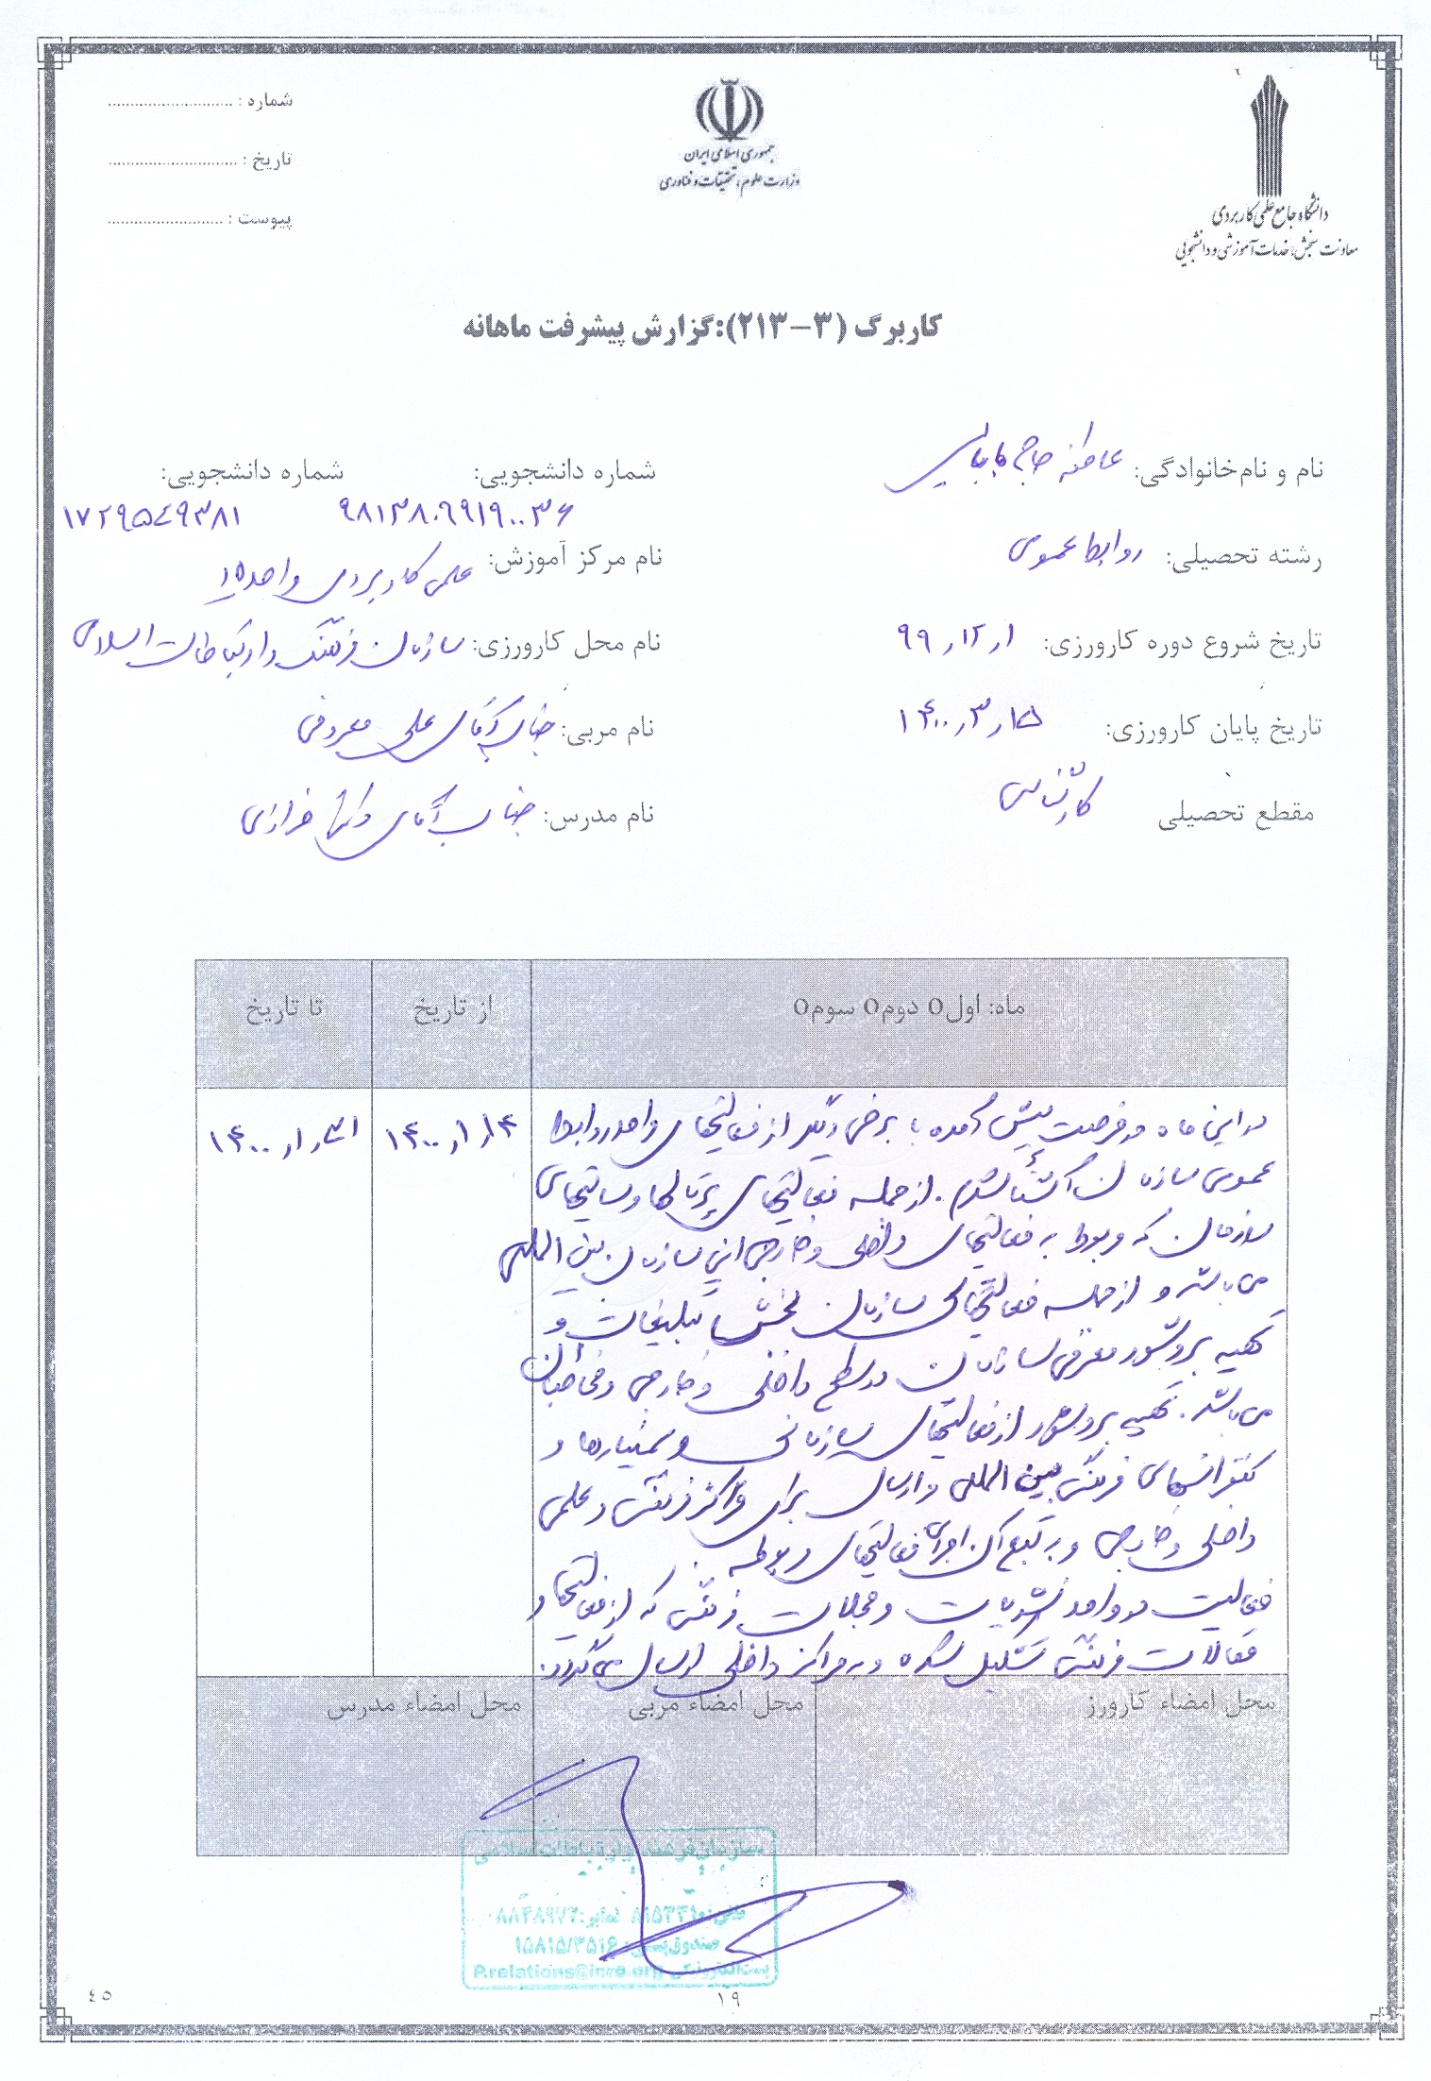 شماره : ............................
تاریخ : ............................
پیوست : ............................
جمهوری اسلامی ایران
وزارت علوم، تحقیقات و فناوری
دانشگاه جامع علمی کاربردی
معاونت سنجش، خدمات آموزشی و دانشجویی
کاربرگ (۳-۲۱۳): گزارش پیشرفت ماهانه
نام و نام‌خانوادگی: عاطفه حاج بابایی
شماره دانشجویی:
شماره دانشجویی:
رشته تحصیلی: روابط عمومی
نام مرکز آموزش: علمی کاربردی واحد ۱۵
تاریخ شروع دوره کارورزی: ۹۹,۱۲,۱
نام محل کارورزی: سازمان فرهنگ و ارتباطات اسلامی
تاریخ پایان کارورزی: ۱۴۰۰,۳,۱۵
نام مربی: جناب آقای علی معروفی
مقطع تحصیلی کارشناسی
نام مدرس: جناب آقای دکتر فرازی
ماه: اول○ دوم○ سوم○
از تاریخ
تا تاریخ
در این ماه و فرصت پیش آمده با برخی دیگر از فعالیتهای واحد روابط
۱۴۰۰,۱,۱۴
۱۴۰۰,۱,۳۱
عمومی سازمان آشنا شدم. از جمله فعالیتهای پرتالها و سایتهای
سازمان که مربوط به فعالیتهای داخلی و خارجی این سازمان بین المللی
می باشد و از جمله فعالیتهای سازمان بخش تبلیغات و
تهیه بروشور معرفی سازمان در سطح داخلی و خارجی و مخاطبان
می باشد. تهیه بروشور از فعالیتهای سازمانی و سمینارها و
کنفرانسهای فرهنگی بین المللی و ارسال برای مراکز فرهنگی و علمی
داخلی و خارجی و به تبع آن اجرای فعالیتهای مربوطه.
فعالیت در واحد نشریات و مجلات فرهنگی که از فعالیتها و
مقالات فرهنگی تشکیل شده و به مراکز داخلی ارسال می گردد.
محل امضاء کارورز
محل امضاء مربی
محل امضاء مدرس
سازمان فرهنگ و ارتباطات اسلامی
صندوق پستی: ۱۵۸۱۵/۳۵۱۶
پست الکترونیکی P.relations@icro.org
۱۹
٤٥